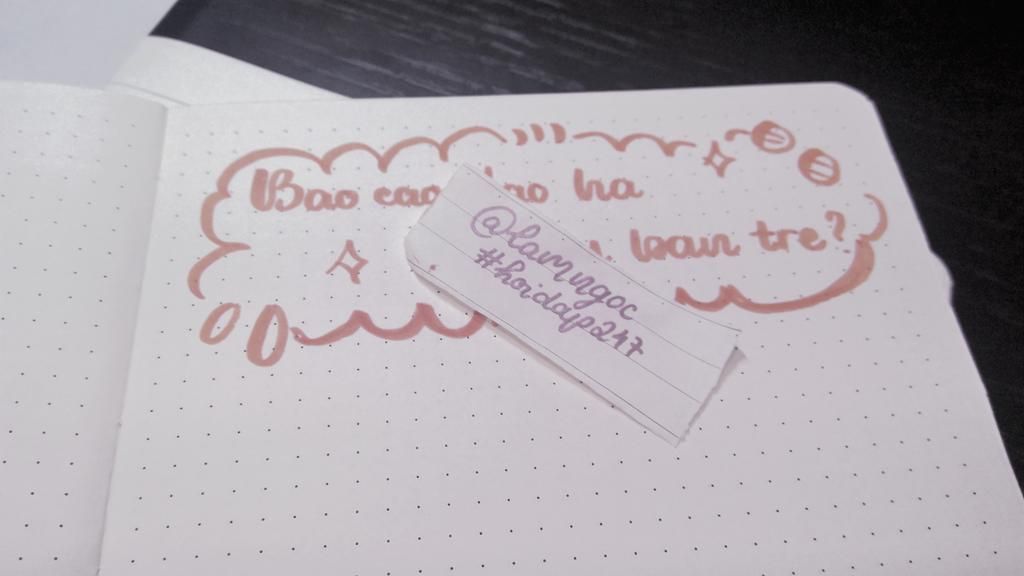 Bao cao ha
ban tre?
@lamngoc
#hoidap247